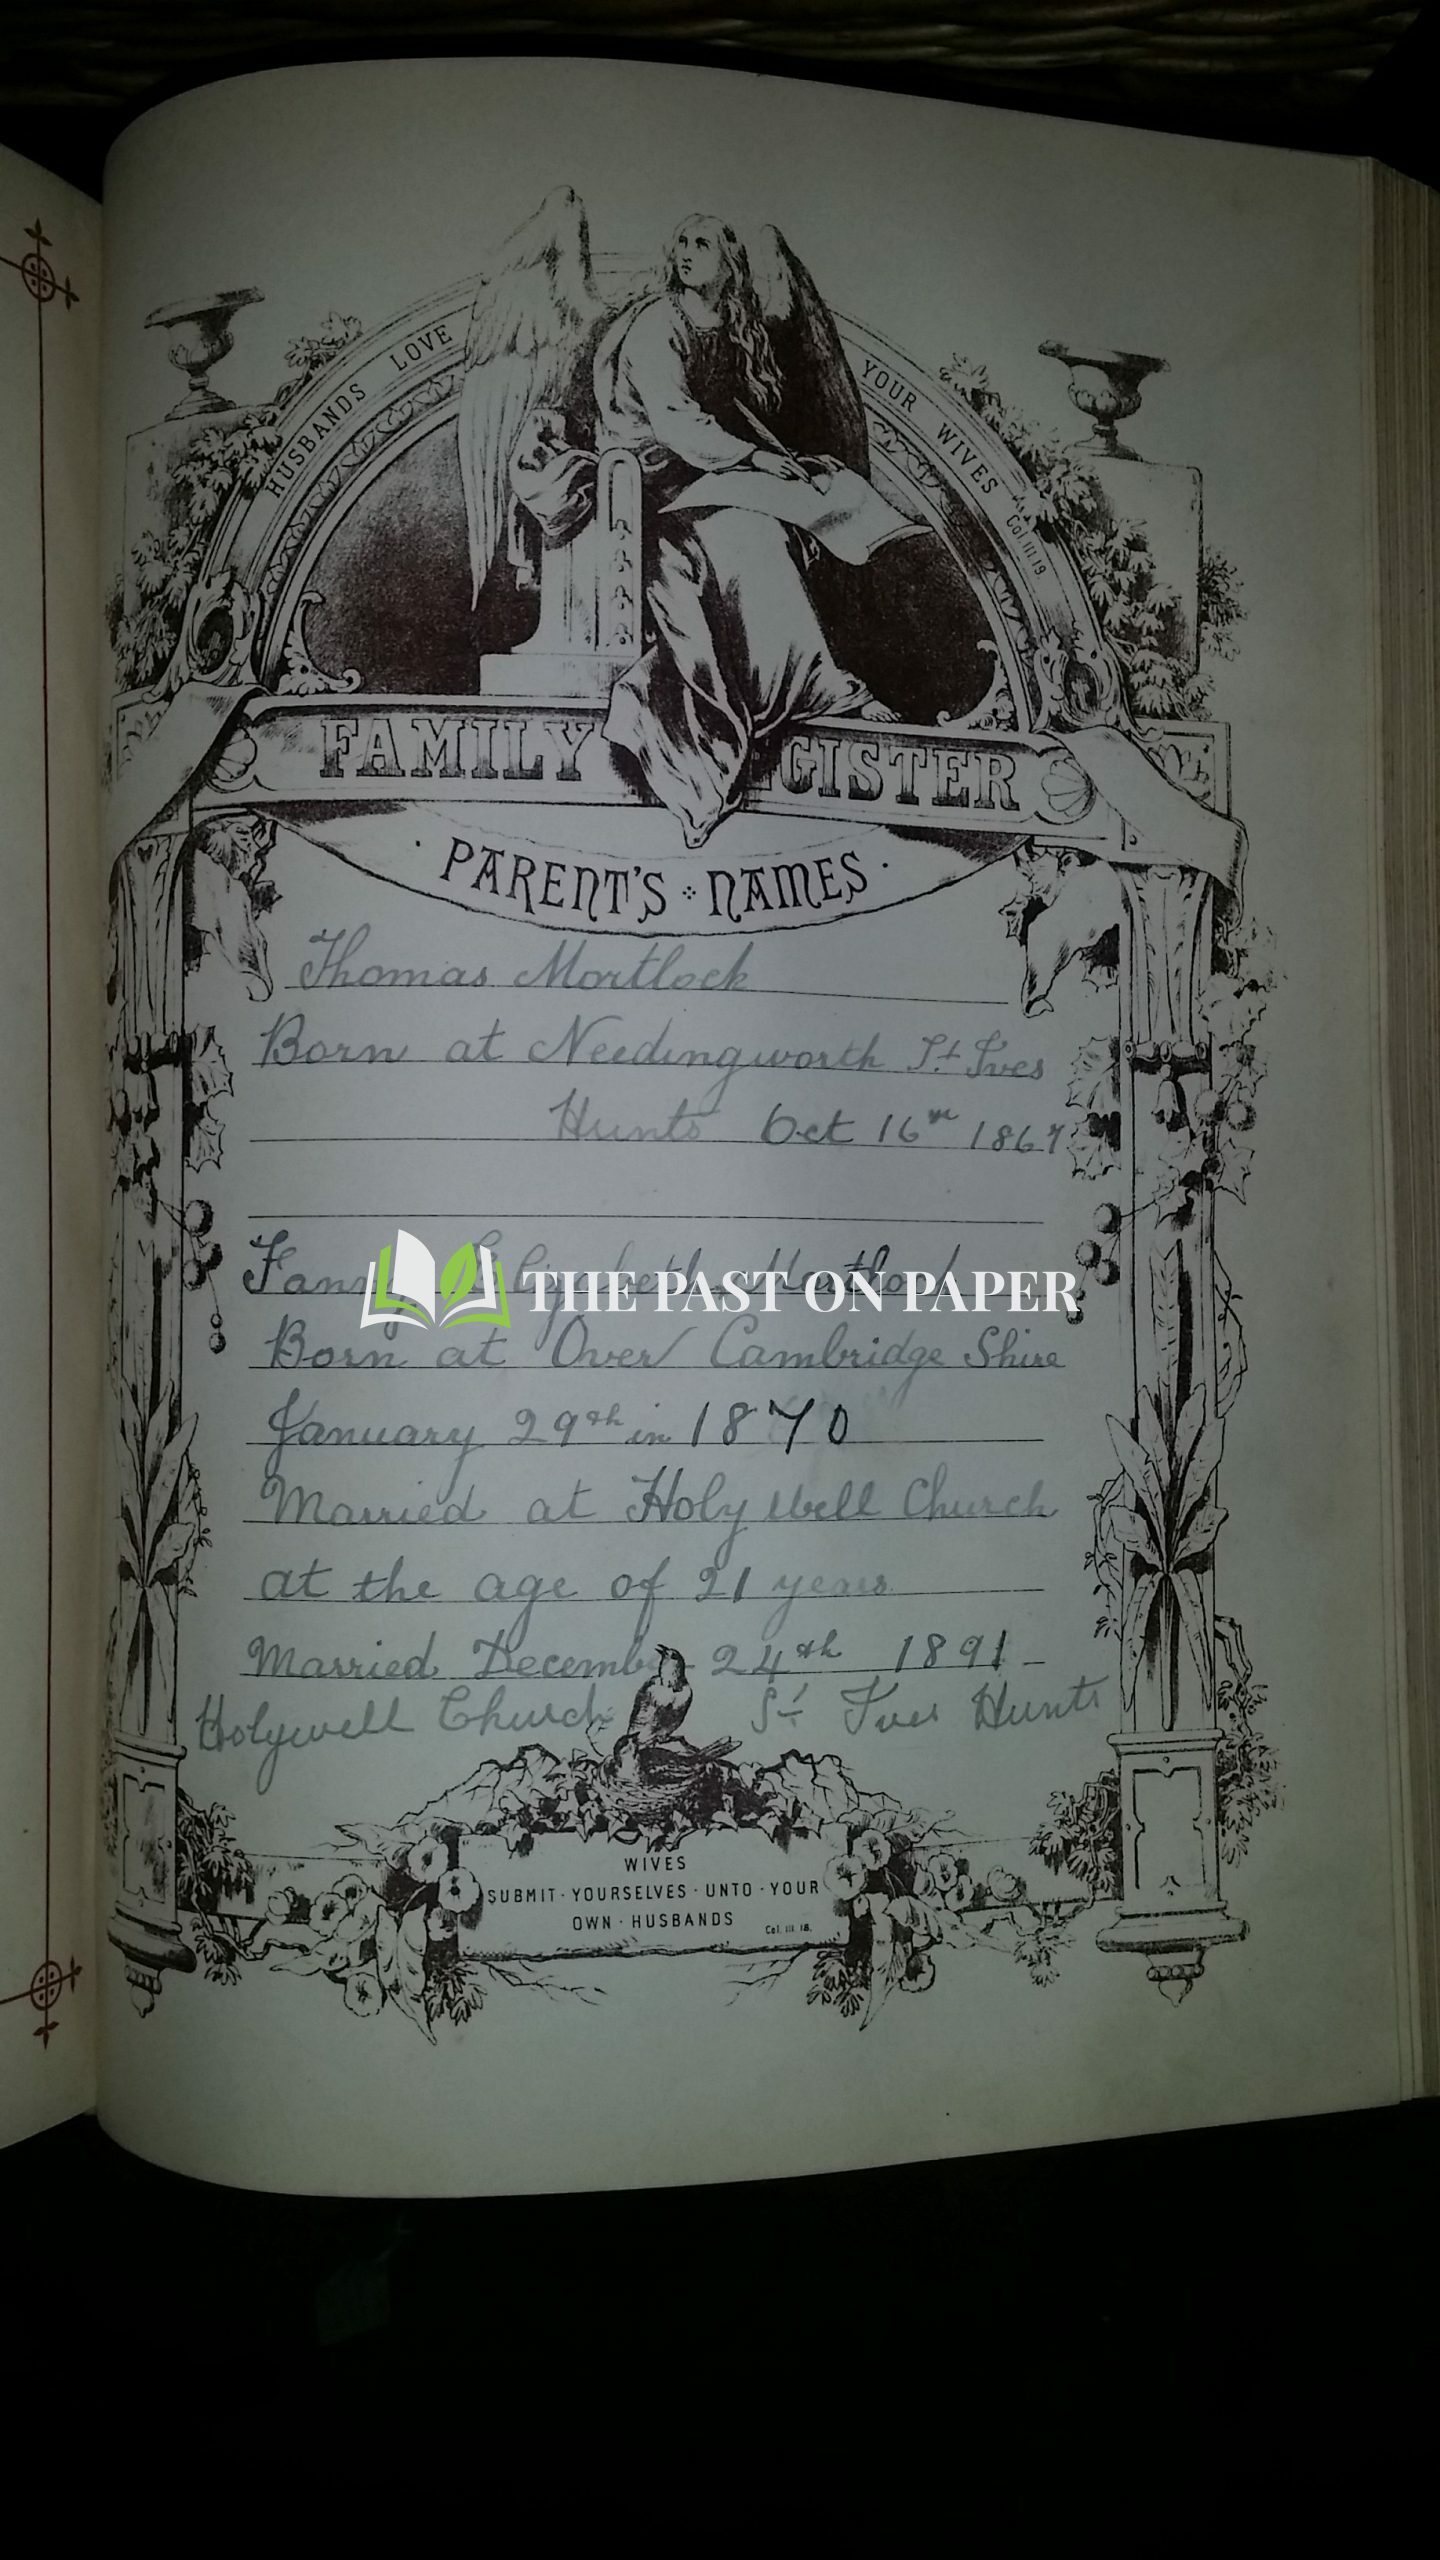 HUSBANDS LOVE YOUR WIVES Col III 19
FAMILY REGISTER
· PARENT'S · NAMES ·
Thomas Mortlock
Born at Needingworth St. Ives
Hunts Oct 16th 1867
Fanny Elizabeth Mortlock
THE PAST ON PAPER
Born at Over Cambridge Shire
January 29th in 1870
Married at Holy Well Church
at the age of 21 years
Married December 24th 1891
Holywell Church St. Ives Hunts
WIVES
SUBMIT · YOURSELVES · UNTO · YOUR
OWN · HUSBANDS Col. III. 18.